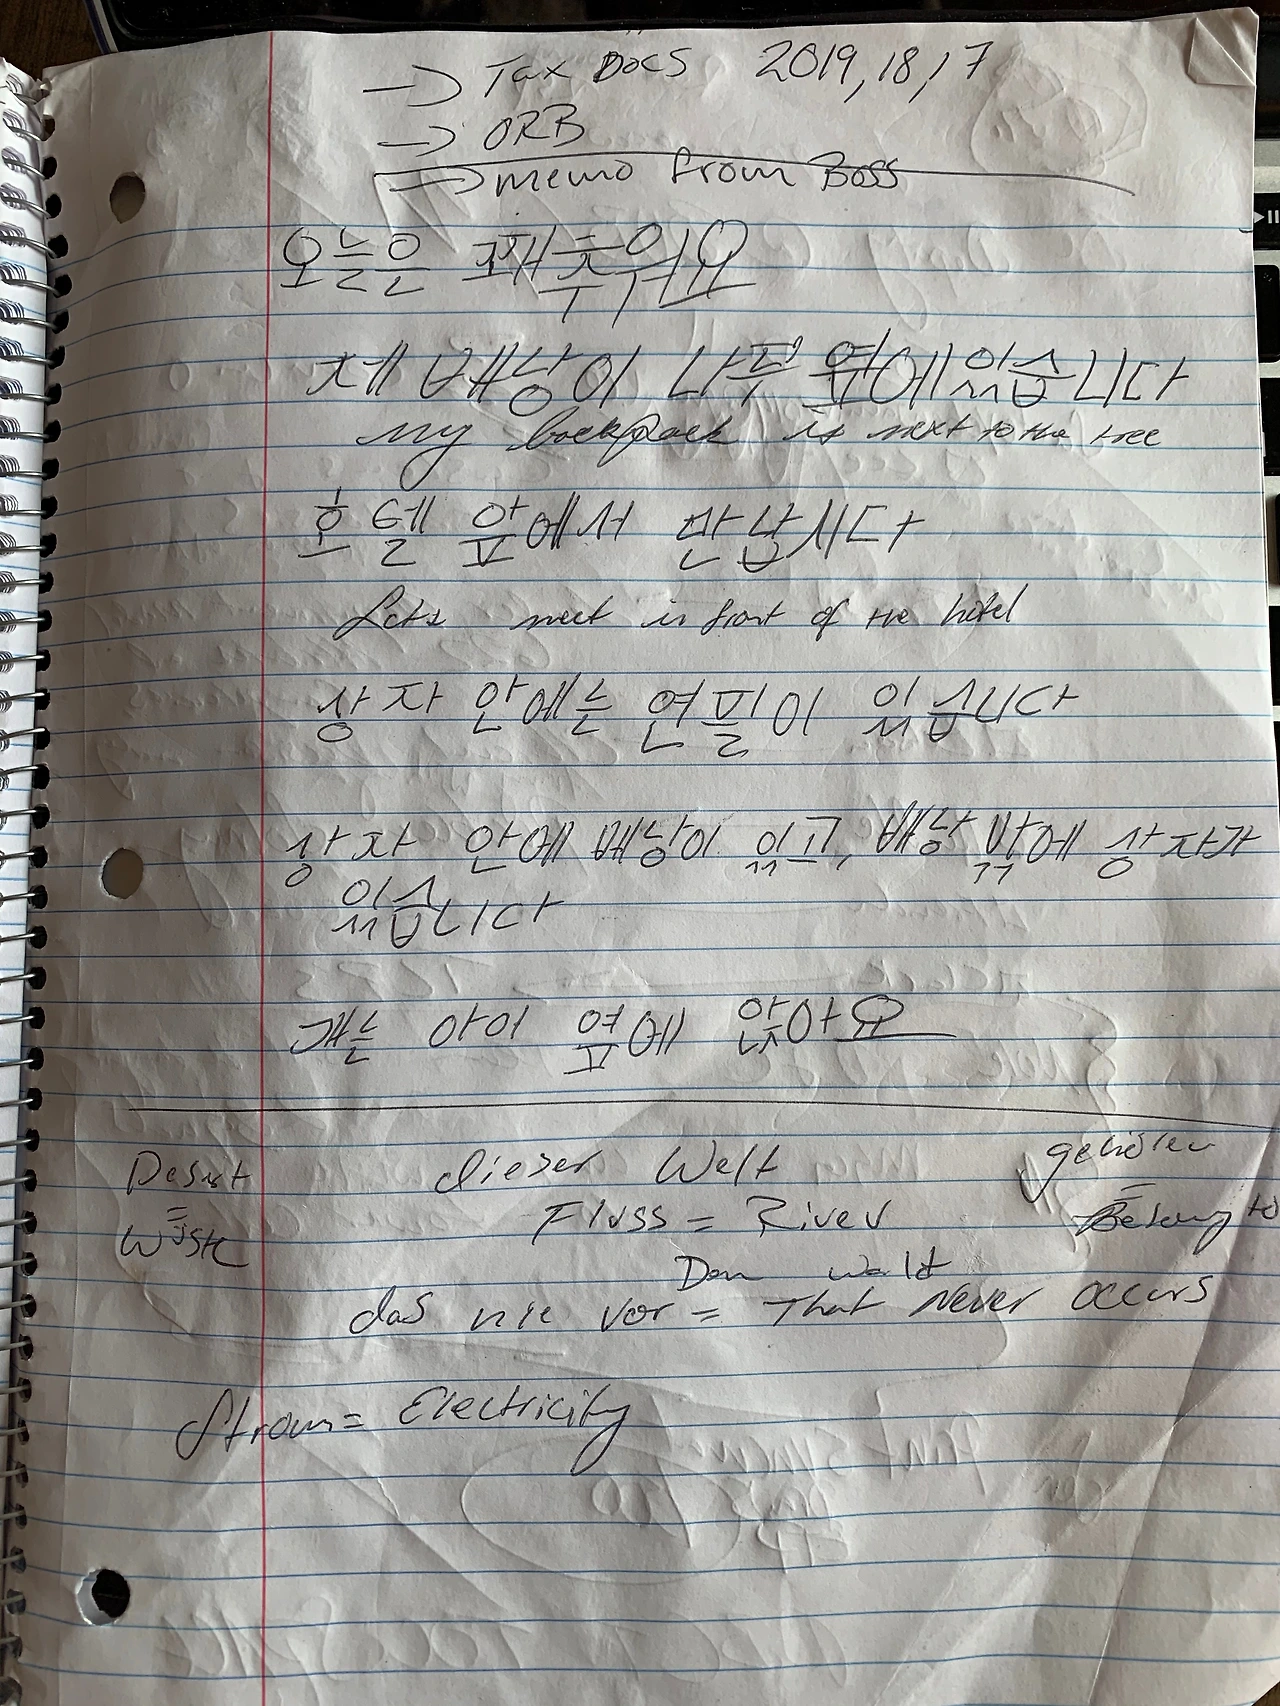 → Tax Docs 2019, 18, 17
→ ORB
→ memo from Boss
오늘은 꽤 추워요
제 배상이 나무 옆에 있습니다
my backpack is next to the tree
호텔 앞에서 만납시다
Lets meet in front of the hotel
상자 안에는 연필이 있습니다
상자 안에 배낭이 있고, 배낭 밖에 상자가
있습니다
개는 아이 옆에 앉아요
Desert = Wüste
dieser Welt
gehören = Belong to
Fluss = River
Den Wald
das nie vor = That Never occurs
Strom = Electricity